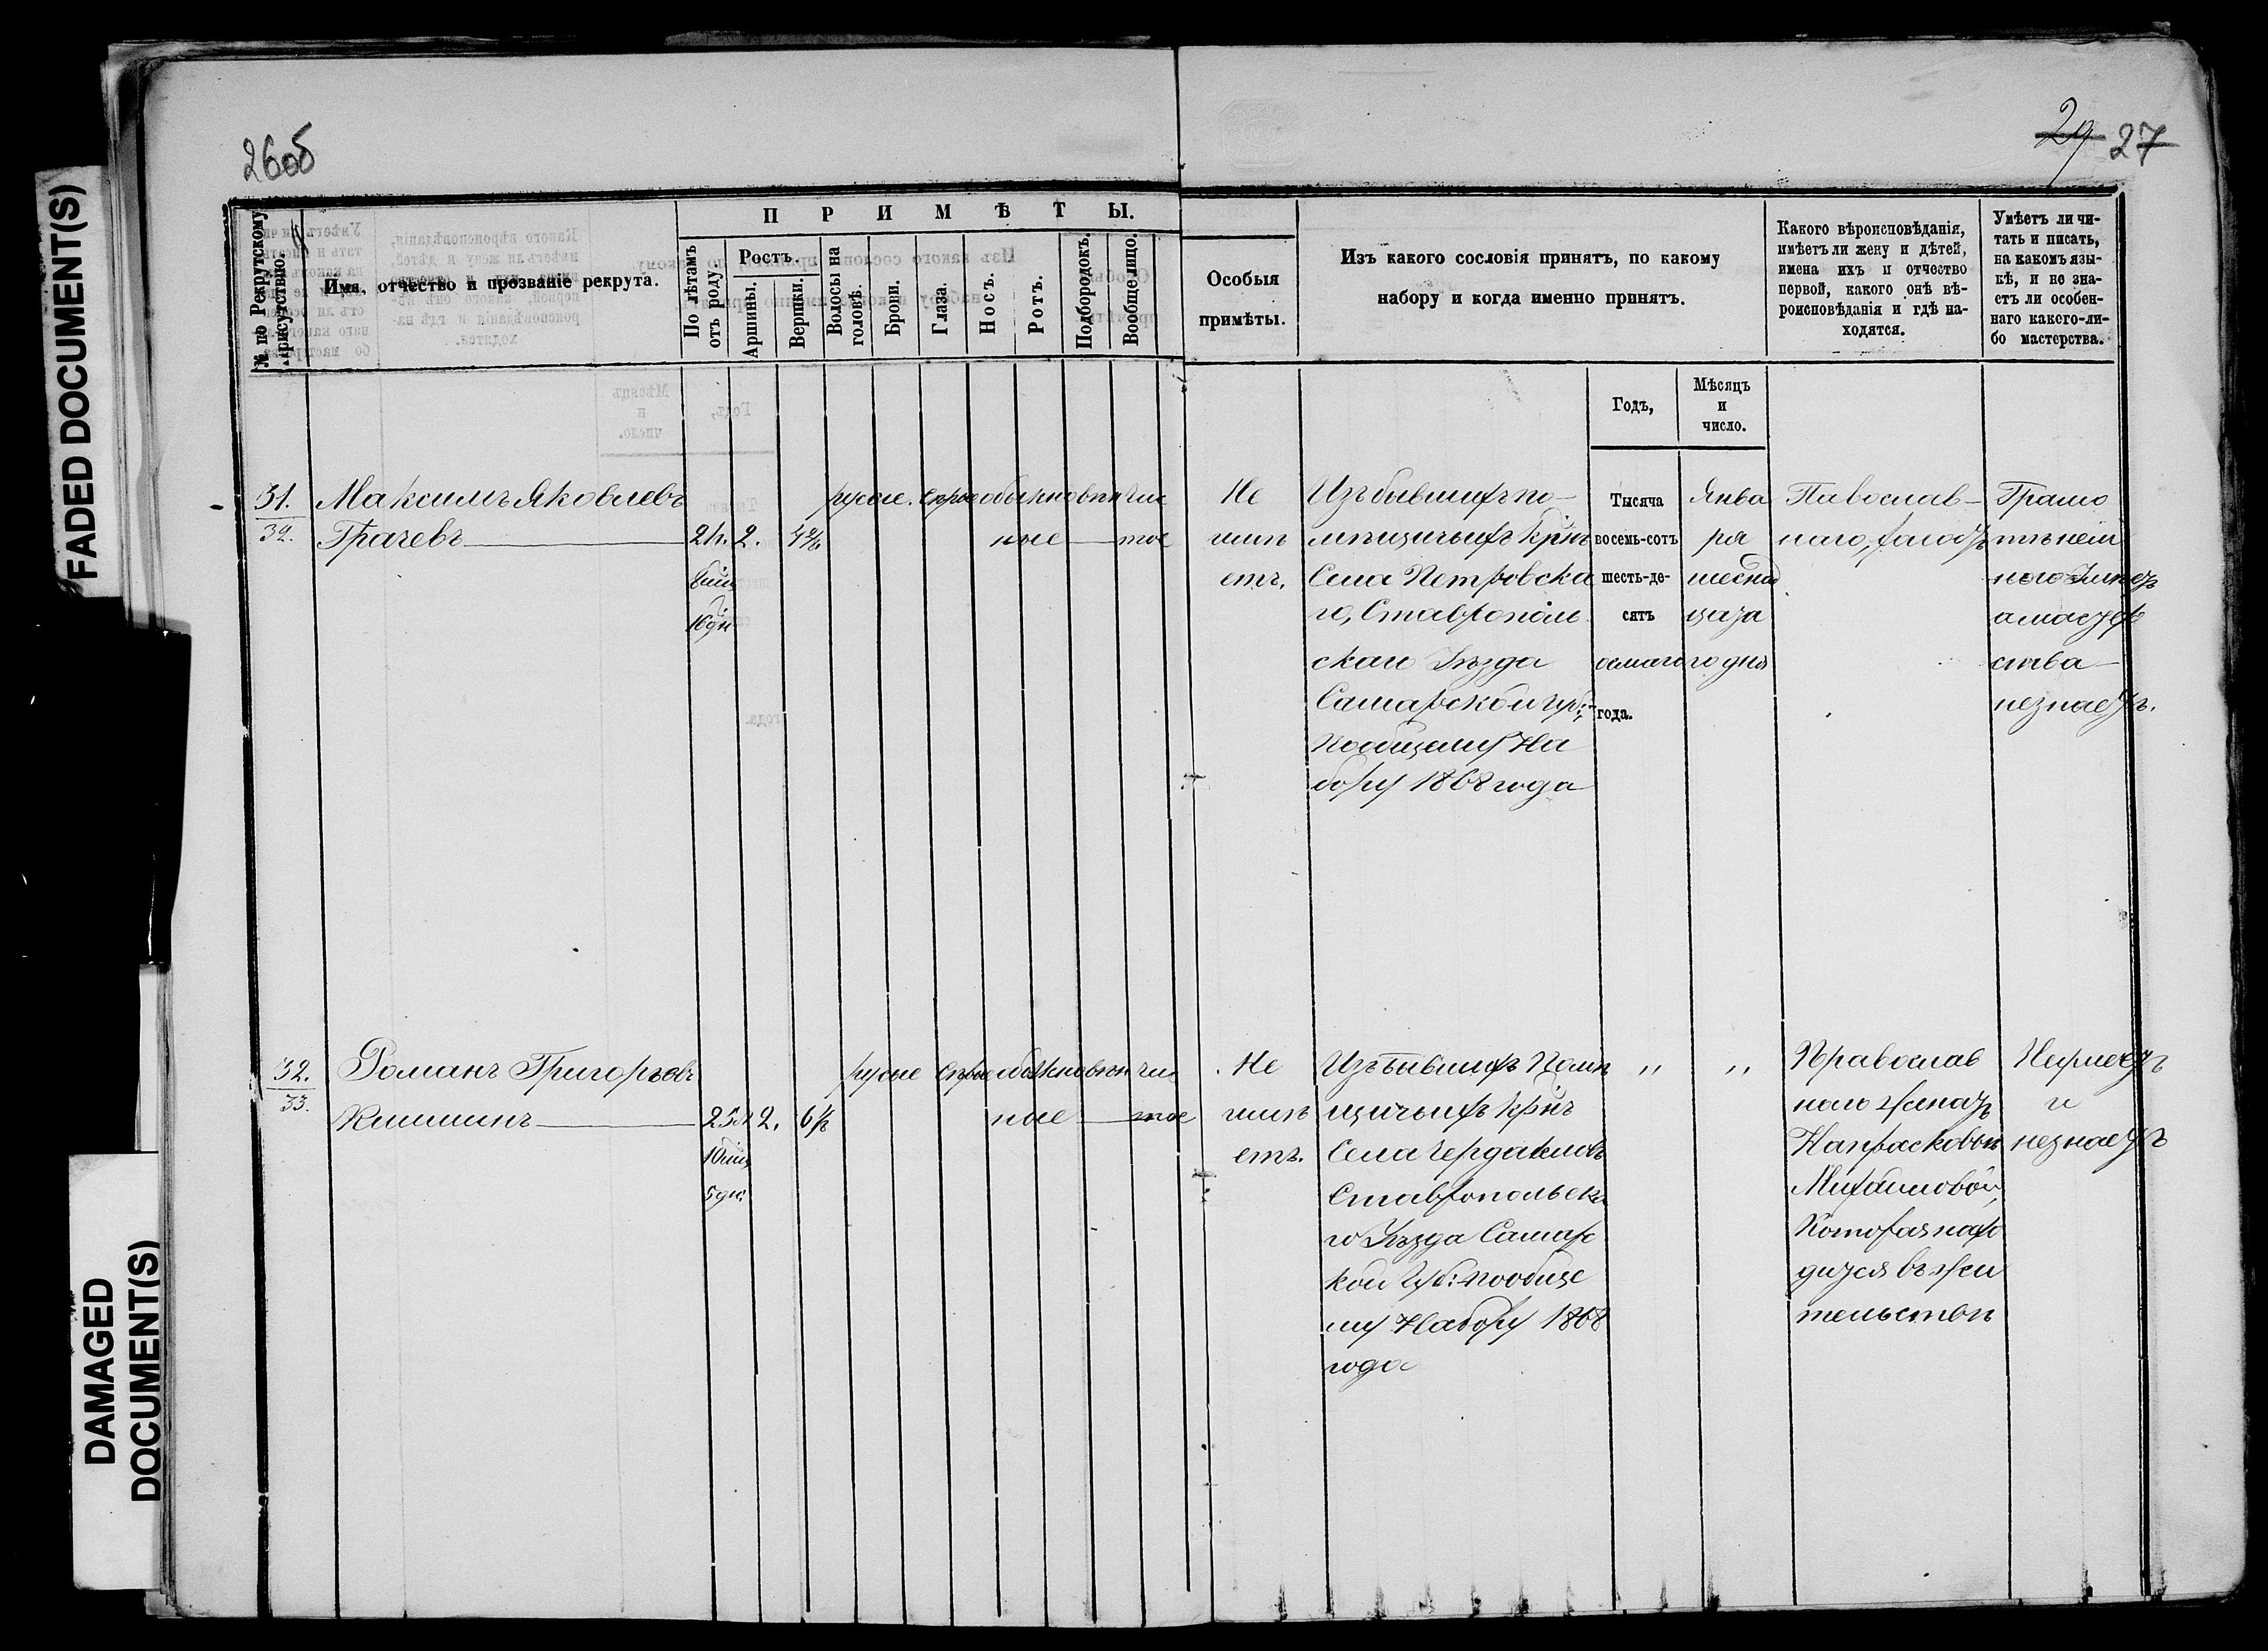 FADED DOCUMENT(S)
DAMAGED
DOCUMENT(S)
26об
29 27
№ по Рекрутскому присутствію.
Имя, отчество и прозваніе рекрута.
ПРИМѢТЫ.
По лѣтамъ отъ роду.
Ростъ.
Аршины.
Вершки.
Волосы на головѣ.
Брови.
Глаза.
Носъ.
Ротъ.
Подбородокъ.
Вообще лицо.
Особыя
примѣты.
Изъ какого сословія принятъ, по какому
набору и когда именно принятъ.
Какого вѣроисповѣданія,
имѣетъ ли жену и дѣтей,
имена ихъ и отчество
первой, какого онѣ вѣ-
роисповѣданія и гдѣ на-
ходятся.
Умѣетъ ли чи-
тать и писать,
на какомъ язы-
кѣ, и не зна-
етъ ли особен-
наго какого-ли-
бо мастерства.
Годъ,
Мѣсяцъ
и
число.
31.
32.
Максимъ Яковлевъ
Грачевъ
21. 2.
8 мц
16 дн
русые. серые обыкновен чис
ное тое
Не
имѣ
етъ.
Изъ бывшихъ по-
мѣщичьихъ крнъ
Села Петровска
го, Ставрополь
скаго Уѣзда
Самарской губ:
По общему На
бору 1868 года
Тысяча
восемь-сотъ
шесть-де-
сятъ
осьмаго
года.
Янва
ря
шеснад
цата
го дня
Павослав-
наго, холостъ
Грамо
незнаетъ.
32.
33.
Романъ Григорьевъ
25 л 2. 6½
10 мц
5 дн:
русые серые обыкновен чис
ное тое
Не
имѣ
етъ.
Изъ бывшихъ Помѣ
щичьихъ крнъ
Села Чердаковъ
Ставропольска
го Уѣзда Самарс
кой Губ: пообще
му Набору 1868
года
" "
Православ
наго женатъ
На прасковьи
Михайловой,
Которая нахо
дится въ жи
тельствѣ
Неумеетъ
и
незнаетъ